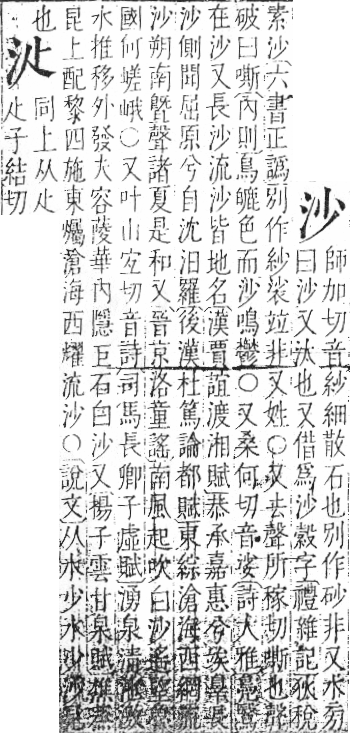 沙
師加切音紗細散石也別作砂非又水旁
曰沙又汰也又借爲沙縠字禮雜記狄稅
素沙六書正譌別作紗裟竝非又姓○又去聲所稼切嘶也聲
破曰嘶內則鳥皫色而沙鳴鬱○又桑何切音娑詩大雅鳧鷖
在沙又長沙流沙皆地名漢賈誼渡湘賦恭承嘉惠兮竢罪長
沙側聞屈原兮自沈汨羅後漢杜篤論都賦東綜滄海西綱流
沙朔南曁聲諸夏是和又晉京洛童謠南風起吹白沙遙望魯
國何嵯峨○又叶山宜切音詩司馬長卿子虛賦湧泉清池激
水推移外發夫容蔆華內隱巨石白沙又揚子雲甘泉賦樵蒸
昆上配黎四施東爥滄海西耀流沙○說文从水少水少沙見
也
𣲡
同上从尐
尐子結切